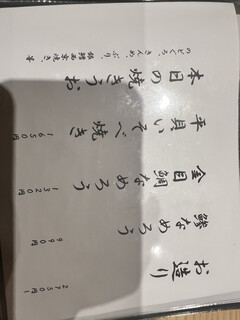 お造り 2750円〜
鯵なめろう 990円
金目鯛なめろう 1320円
平貝いそべ焼き 1650円
本日の焼きうお
のどぐろ、きんめ、ぶり、銀鱈西京焼き 等